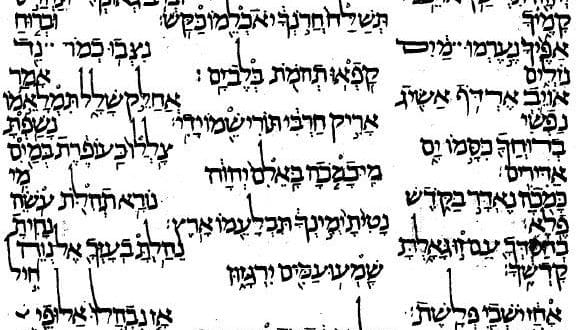 קמיך תשלח חרנך יאכלמו כקש׃ וברוח
אפיך נערמו מים נצבו כמו נד
נזלים קפאו תהמת בלב ים׃ אמר
אויב ארדף אשיג אחלק שלל תמלאמו
נפשי אריק חרבי תורישמו ידי׃ נשפת
ברוחך כסמו ים צללו כעופרת במים
אדירים׃ מי כמכה באלם יהוה מי
כמכה נאדר בקדש נורא תהלת עשה
פלא׃ נטית ימינך תבלעמו ארץ׃ נחית
בחסדך עם זו גאלת נהלת בעזך אל נוה
קדשך׃ שמעו עמים ירגזון חיל
אחז ישבי פלשת׃ אז נבהלו אלופי